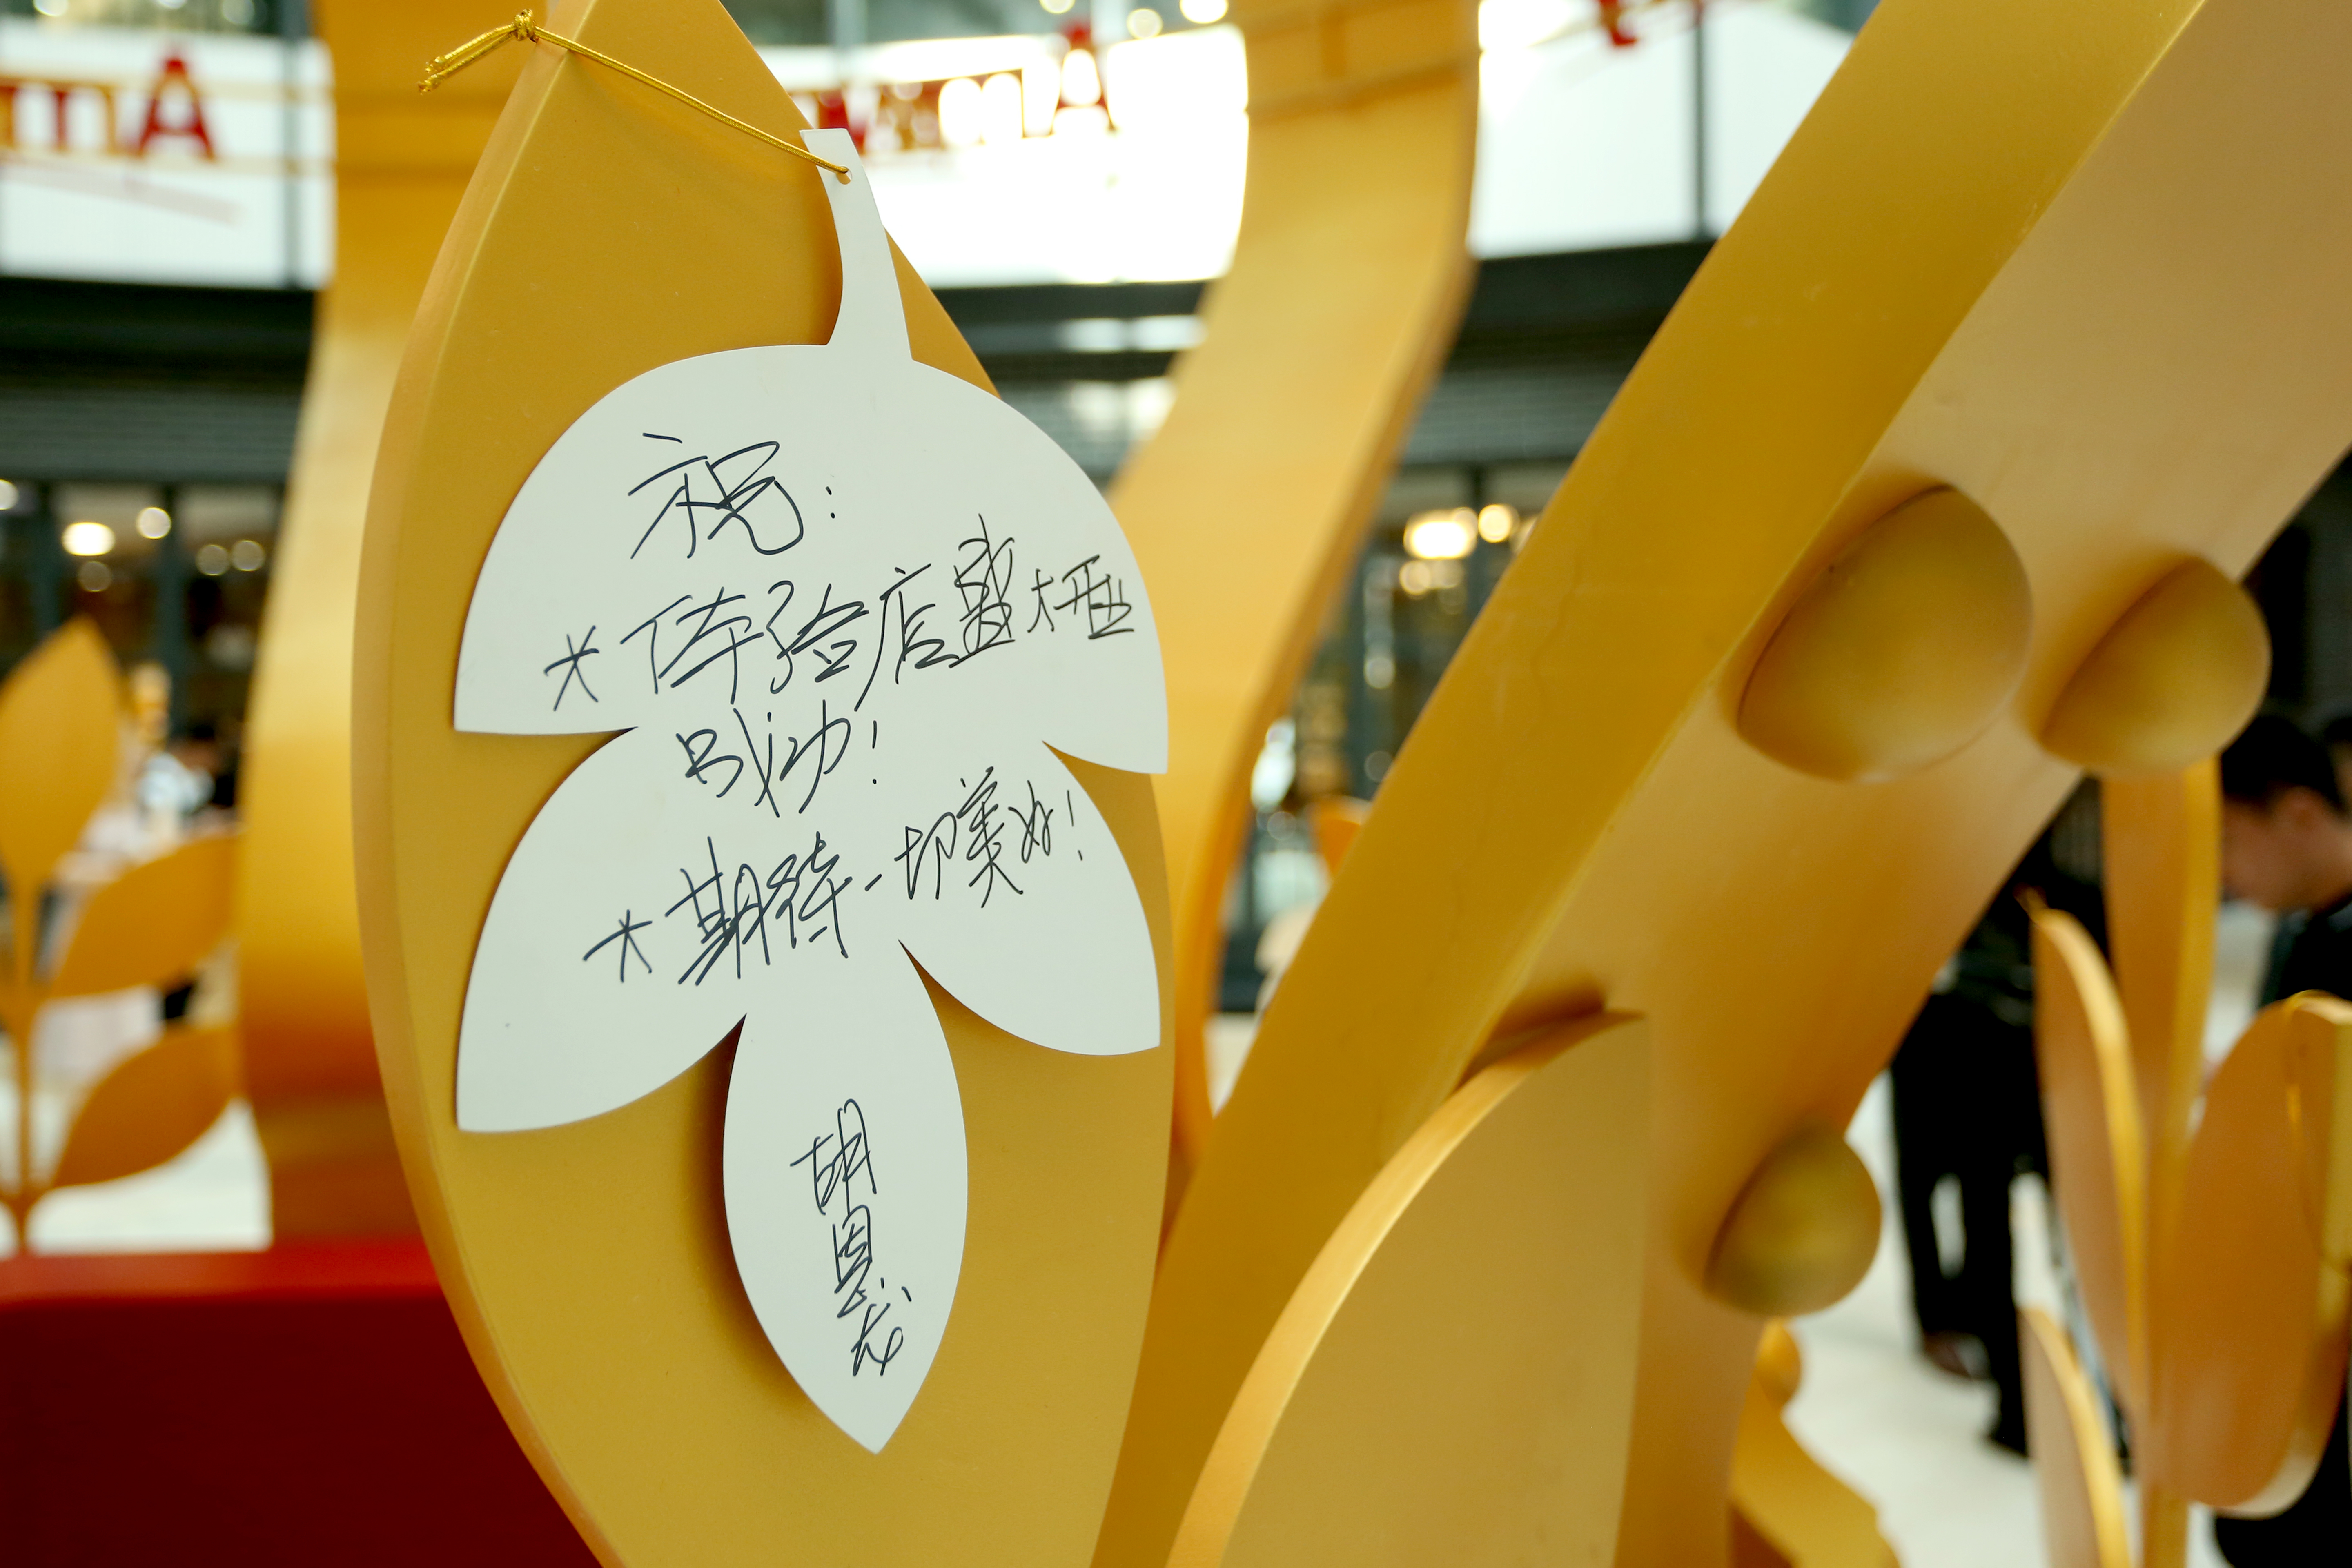 祝:
* 体验店盛大开业
成功!
* 期待一切美好!
胡恩龙